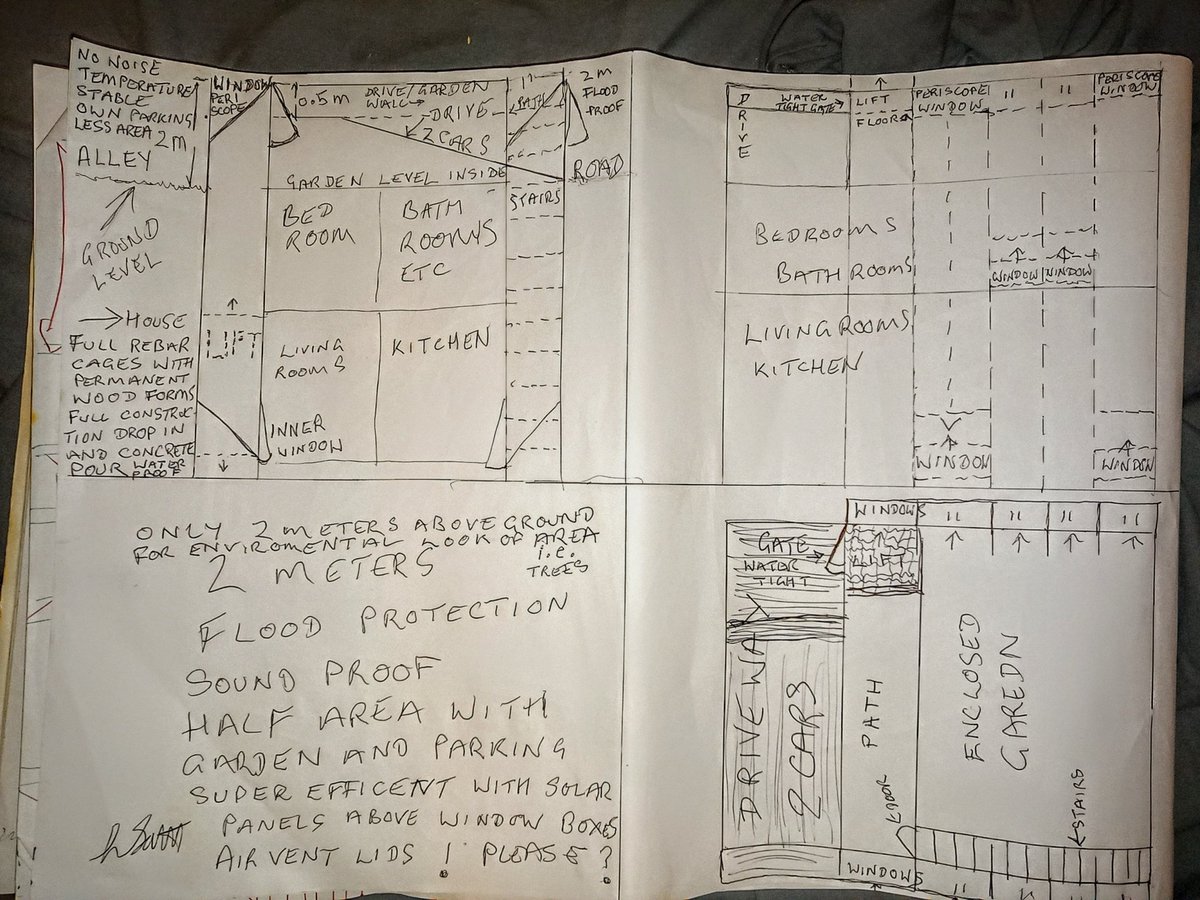 NO NOISE
TEMPERATURE
STABLE
OWN PARKING
LESS AREA 2M
ALLEY
GROUND
LEVEL
WINDOW
PERI
SCOPE
0.5M
DRIVE/GARDEN
WALL
DRIVE
2 CARS
11
PATH
2M
FLOOD
PROOF
ROAD
GARDEN LEVEL INSIDE
STAIRS
BED
ROOM
BATH
ROOMS
ETC
LIFT
LIVING
ROOMS
KITCHEN
INNER
WINDOW
HOUSE
FULL REBAR
CAGES WITH
PERMANENT
WOOD FORMS
FULL CONSTRUC-
TION DROP IN
AND CONCRETE
POUR WATER
PROOF
DRIVE
WATER
TIGHT GATE
LIFT
FLOOR
PERISCOPE
WINDOW
11
11
PERISCOPE
WINDOW
BEDROOMS
BATHROOMS
WINDOW WINDOW
LIVINGROOMS
KITCHEN
WINDOW
WINDOW
ONLY 2 METERS ABOVE GROUND
FOR ENVIROMENTAL LOOK OF AREA
i.e.
TREES
2 METERS
FLOOD PROTECTION
SOUND PROOF
HALF AREA WITH
GARDEN AND PARKING
SUPER EFFICENT WITH SOLAR
PANELS ABOVE WINDOW BOXES
AIR VENT LIDS ! PLEASE ?
WINDOWS
11
11
11
11
GATE
WATER
TIGHT
LIFT
DRIVEWAY
2 CARS
PATH
DOOR
ENCLOSED
GAREDN
STAIRS
WINDOWS
11
11
11